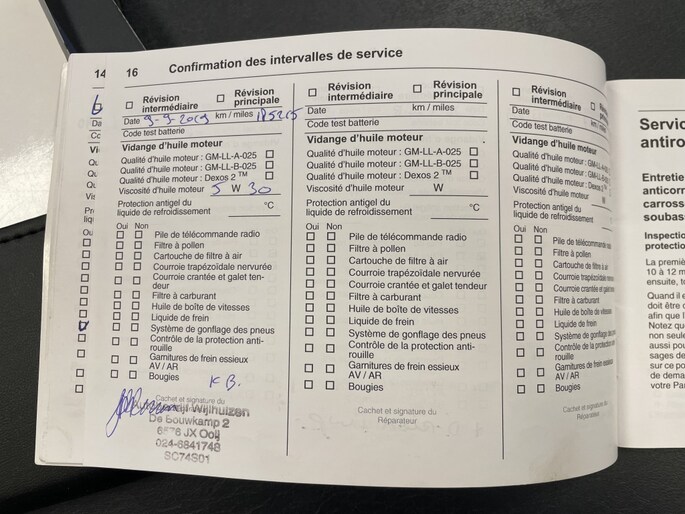 14 16 Confirmation des intervalles de service
Révision intermédiaire
Révision principale
Date 9-9-2019 km / miles
Code test batterie
Vidange d'huile moteur
Qualité d'huile moteur : GM-LL-A-025
Qualité d'huile moteur : GM-LL-B-025
Qualité d'huile moteur : Dexos 2 ™
Viscosité d'huile moteur 5 W 30
Protection antigel du
liquide de refroidissement °C
Oui Non
Pile de télécommande radio
Filtre à pollen
Cartouche de filtre à air
Courroie trapézoïdale nervurée
Courroie crantée et galet ten-
deur
Filtre à carburant
Huile de boîte de vitesses
Liquide de frein
Système de gonflage des pneus
Contrôle de la protection anti-
rouille
Garnitures de frein essieux
AV / AR
Bougies
K B.
Cachet et signature du
Wijlhuizen
De Bouwkamp 2
6576 JX Ooij
024-6841748
SC74S01
Révision intermédiaire
Révision principale
Date km / miles
Code test batterie
Vidange d'huile moteur
Qualité d'huile moteur : GM-LL-A-025
Qualité d'huile moteur : GM-LL-B-025
Qualité d'huile moteur : Dexos 2 ™
Viscosité d'huile moteur W
Protection antigel du
liquide de refroidissement °C
Oui Non
Pile de télécommande radio
Filtre à pollen
Cartouche de filtre à air
Courroie trapézoïdale nervurée
Courroie crantée et galet tendeur
Filtre à carburant
Huile de boîte de vitesses
Liquide de frein
Système de gonflage des pneus
Contrôle de la protection anti-
rouille
Garnitures de frein essieux
AV / AR
Bougies
Cachet et signature du
Réparateur
Révision
intermédiaire
Date km / miles
Code test batterie
Vidange d'huile moteur
Qualité d'huile moteur : GM-LL
Qualité d'huile moteur : GM-LL
Qualité d'huile moteur : Dexos
Viscosité d'huile moteur W
Protection antigel du
liquide de refroidissement
Oui Non
Pile de télécommande radio
Filtre à pollen
Cartouche de filtre à air
Courroie trapézoïdale
Courroie crantée et galet
Filtre à carburant
Huile de boîte de vitesses
Liquide de frein
Système de gonflage des
Contrôle de la protection
rouille
Garnitures de frein essieux
AV / AR
Bougies
Cachet et signature du
Réparateur
Servic
antiro
Entretie
anticorr
carross
soubas
Inspectio
protectio
La premiè
10 à 12 m
ensuite, to
Quand il e
doit être
afin que l'
Notez qu
non seule
aussi pou
sages de
sur ce po
de dema
votre Par